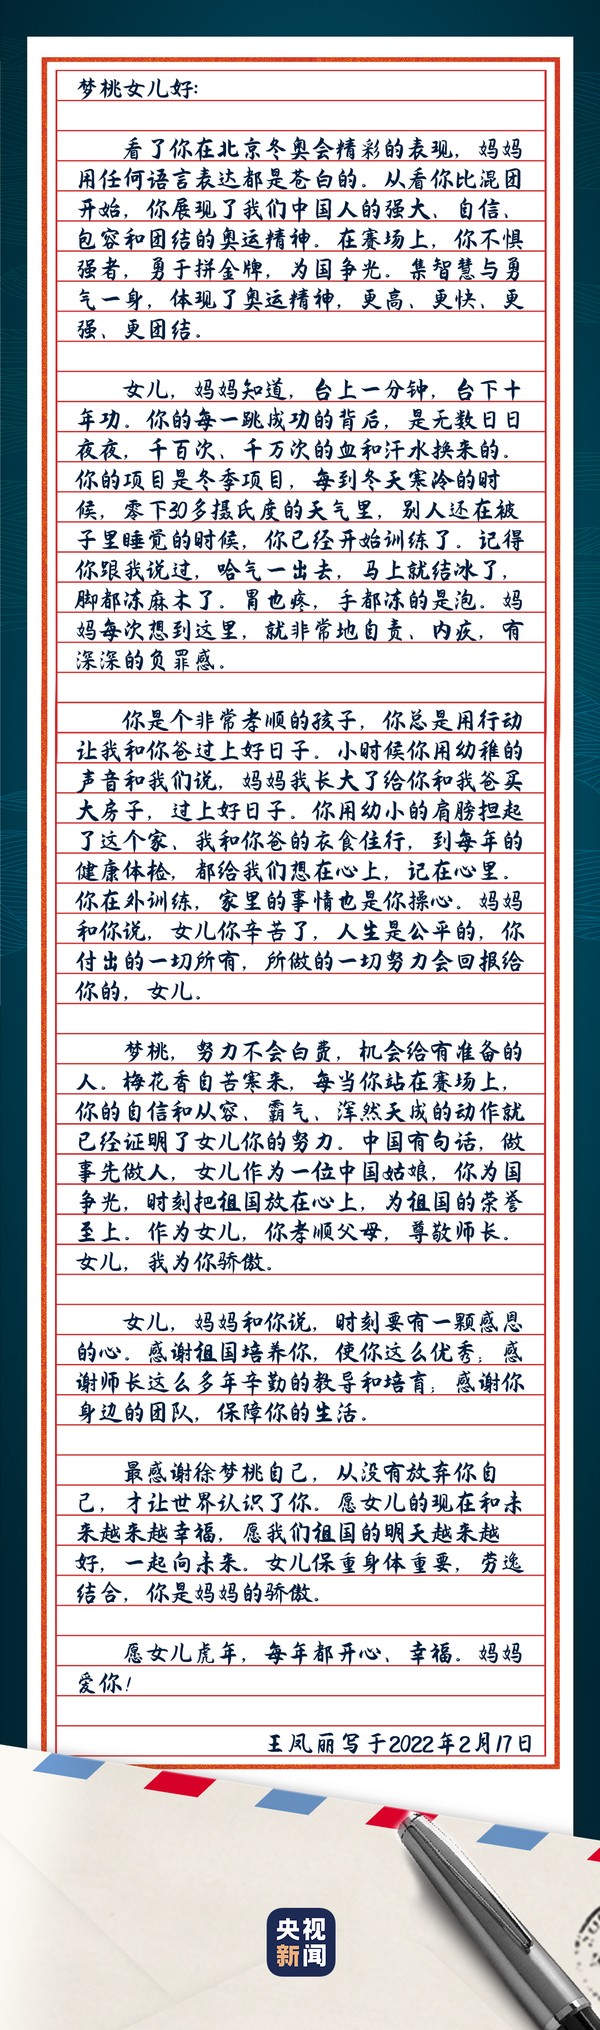 梦桃女儿好:
看了你在北京冬奥会精彩的表现，妈妈
用任何语言表达都是苍白的。从看你比混团
开始，你展现了我们中国人的强大、自信、
包容和团结的奥运精神。在赛场上，你不惧
强者，勇于拼金牌，为国争光。集智慧与勇
气一身，体现了奥运精神，更高、更快、更
强、更团结。
女儿，妈妈知道，台上一分钟，台下十
年功。你的每一跳成功的背后，是无数日日
夜夜，千百次、千万次的血和汗水换来的。
你的项目是冬季项目，每到冬天寒冷的时
候，零下30多摄氏度的天气里，别人还在被
子里睡觉的时候，你已经开始训练了。记得
你跟我说过，哈气一出去，马上就结冰了，
脚都冻麻木了。胃也疼，手都冻的是泡。妈
妈每次想到这里，就非常地自责、内疚，有
深深的负罪感。
你是个非常孝顺的孩子，你总是用行动
让我和你爸过上好日子。小时候你用幼稚的
声音和我们说，妈妈我长大了给你和我爸买
大房子，过上好日子。你用幼小的肩膀担起
了这个家、我和你爸的衣食住行，到每年的
健康体检，都给我们想在心上，记在心里。
你在外训练，家里的事情也是你操心。妈妈
和你说，女儿你辛苦了，人生是公平的，你
付出的一切所有，所做的一切努力会回报给
你的，女儿。
梦桃，努力不会白费，机会给有准备的
人。梅花香自苦寒来，每当你站在赛场上，
你的自信和从容、霸气、浑然天成的动作就
已经证明了女儿你的努力。中国有句话，做
事先做人，女儿作为一位中国姑娘，你为国
争光，时刻把祖国放在心上，为祖国的荣誉
至上。作为女儿，你孝顺父母，尊敬师长。
女儿，我为你骄傲。
女儿，妈妈和你说，时刻要有一颗感恩
的心。感谢祖国培养你，使你这么优秀；感
谢师长这么多年辛勤的教导和培育；感谢你
身边的团队，保障你的生活。
最感谢徐梦桃自己，从没有放弃你自
己，才让世界认识了你。愿女儿的现在和未
来越来越幸福，愿我们祖国的明天越来越
好，一起向未来。女儿保重身体重要，劳逸
结合，你是妈妈的骄傲。
愿女儿虎年，每年都开心、幸福。妈妈
爱你！
王凤丽写于2022年2月17日
央视
新闻